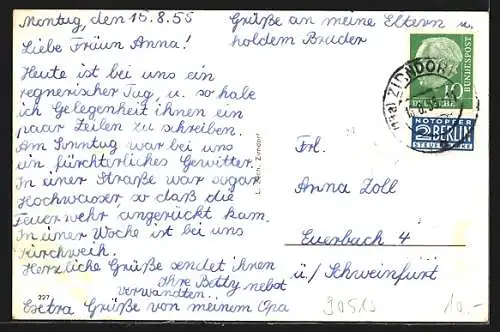 Montag, den 15.8.55
Grüße an meine Eltern u.
holdem Bruder
Liebe Fräun Anna!
Heute ist bei uns ein
regnerischer Tag, u. so habe
ich Gelegenheit ihnen ein
paar Zeilen zu schreiben.
Am Sonntag war bei uns
ein fürchterliches Gewitter.
In einer Straße war sogar
Hochwasser, so daß die
Feuerwehr angerückt kam.
In einer Woche ist bei uns
Kirchweih.
Herzliche Grüße sendet ihnen
Ihre Betty nebst
verwandten.
Extra Grüße von meinem Opa
Frl.
Anna Zoll
Euerbach 4
ü/ Schweinfurt
10
DEUTSCHE
BUNDESPOST
ZIRNDORF
NOTOPFER
2 BERLIN
STEUERMARKE
Zirndorf
327
90513
10.-